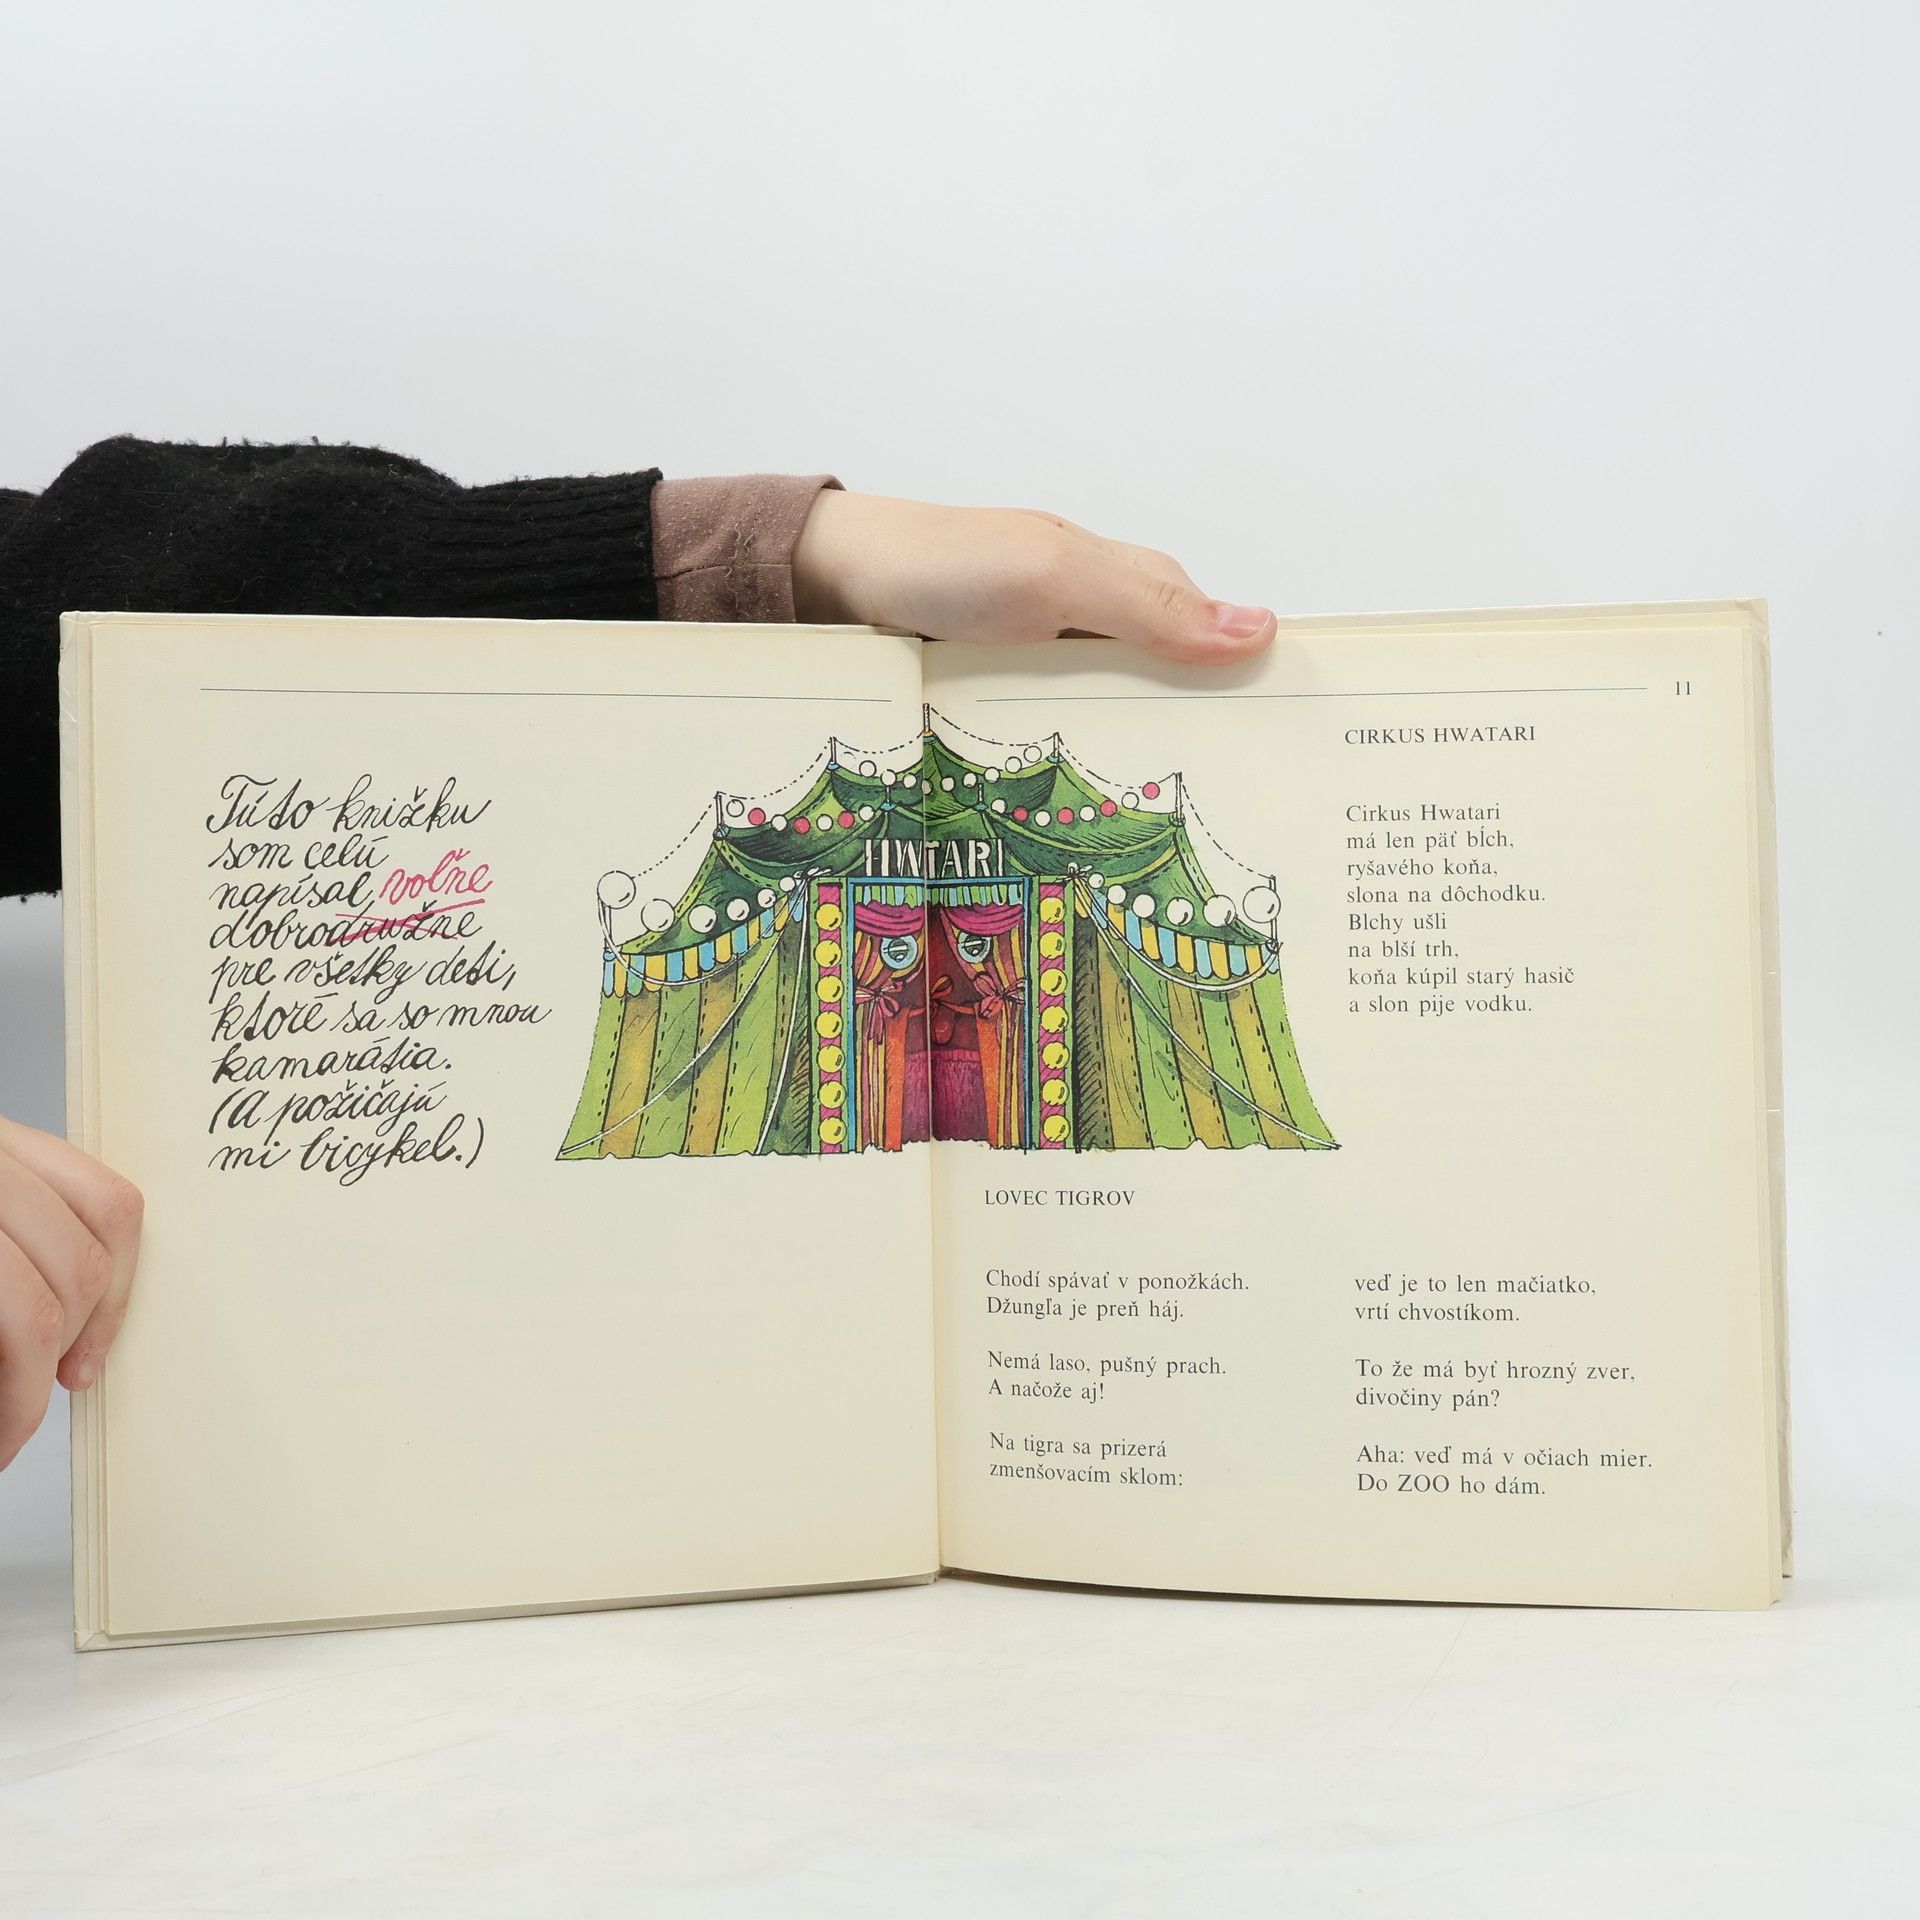 Túto knižku
som celú
napísal voľne
dobrodružne
pre všetky deti,
ktoré sa so mnou
kamarátia.
(A požičajú
mi bicykel.)
HWTARI
11
CIRKUS HWATARI
Cirkus Hwatari
má len päť bĺch,
ryšavého koňa,
slona na dôchodku.
Blchy ušli
na blší trh,
koňa kúpil starý hasič
a slon pije vodku.
LOVEC TIGROV
Chodí spávať v ponožkách.
Džungľa je preň háj.
Nemá laso, pušný prach.
A načože aj!
Na tigra sa prizerá
zmenšovacím sklom:
veď je to len mačiatko,
vrtí chvostíkom.
To že má byť hrozný zver,
divočiny pán?
Aha: veď má v očiach mier.
Do ZOO ho dám.